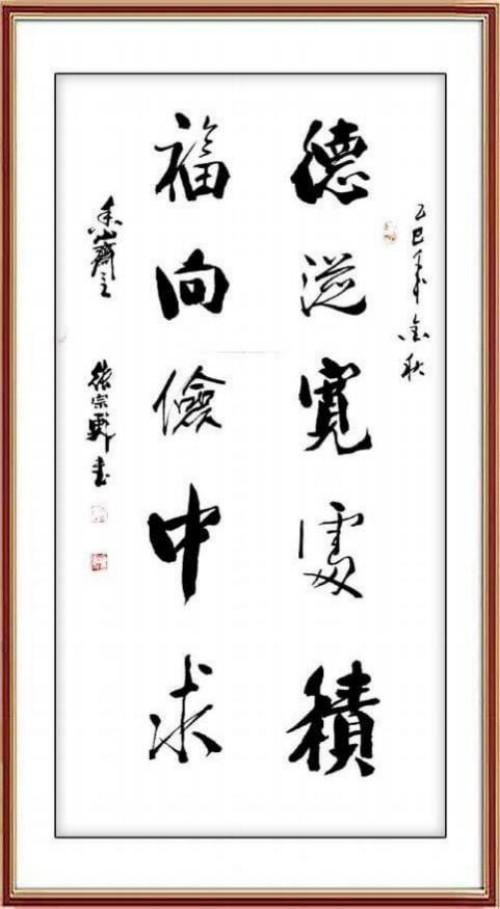 乙巳年金秋
德從寬處積
福向儉中求
香山齋主
宗書